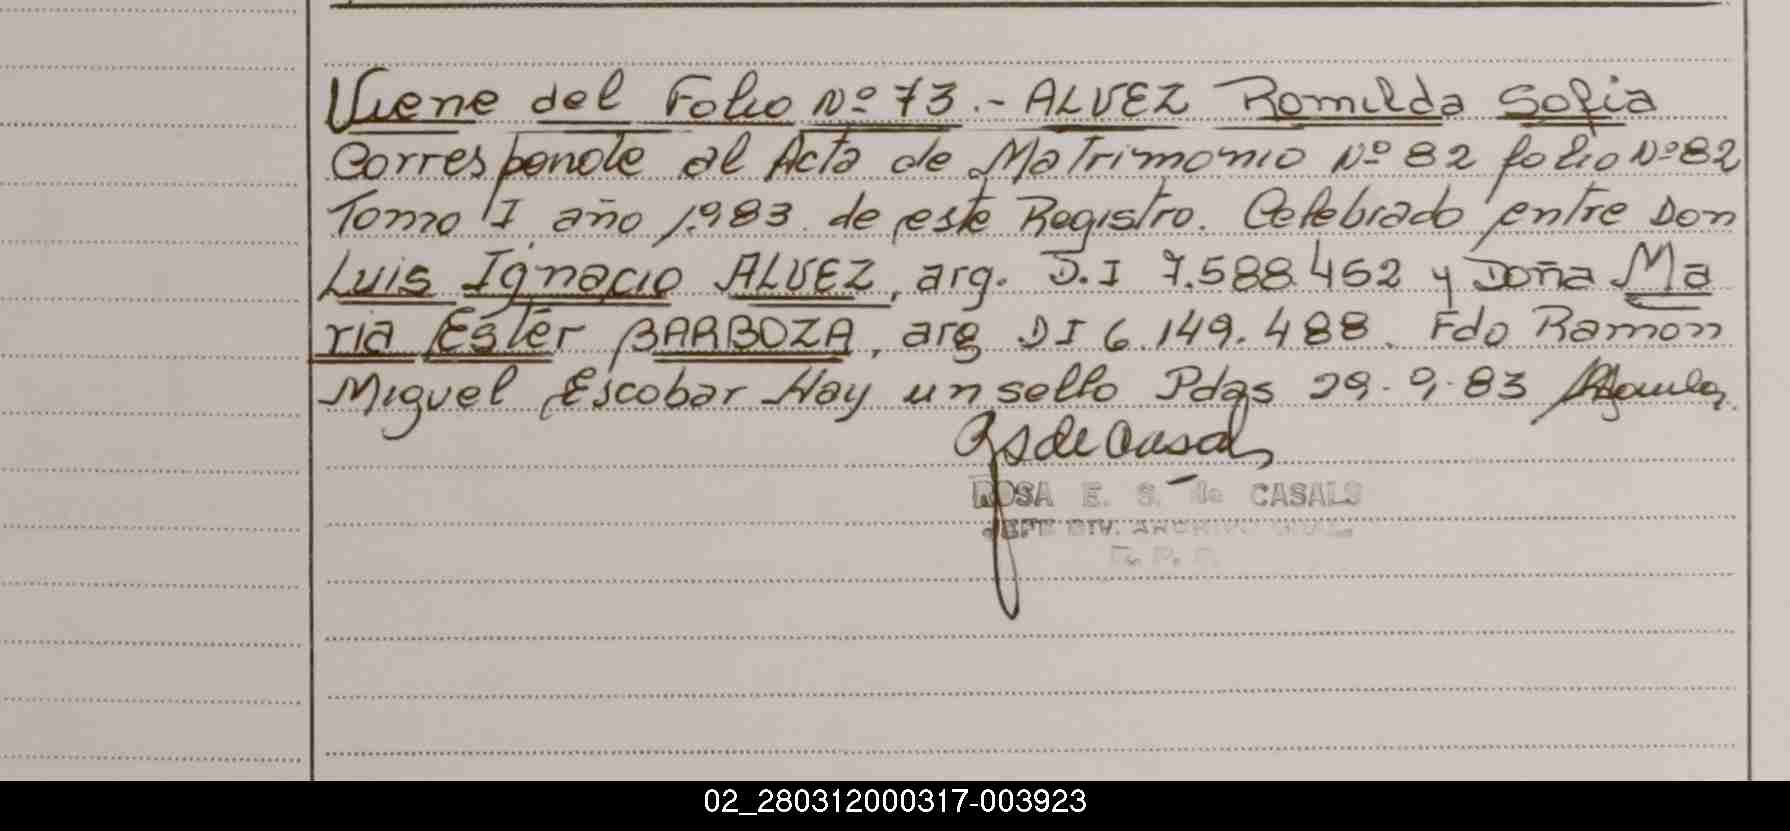 Viene del Folio Nº 73.- ALVEZ Romilda Sofia
Corresponde al Acta de Matrimonio Nº 82 folio Nº 82
Tomo I año 1.983. de este Registro. Celebrado entre Don
Luis Ignacio ALVEZ, arg. D.I 7.588.452 y Doña Ma
ria Ester BARBOZA, arg DI 6.149.488. Fdo Ramon
Miguel Escobar Hay un sello Pdas 29-9-83
RS de Casals
ROSA E. S. de CASALS
JEFE DIV. ARCHIVO GRAL.
02_280312000317-003923